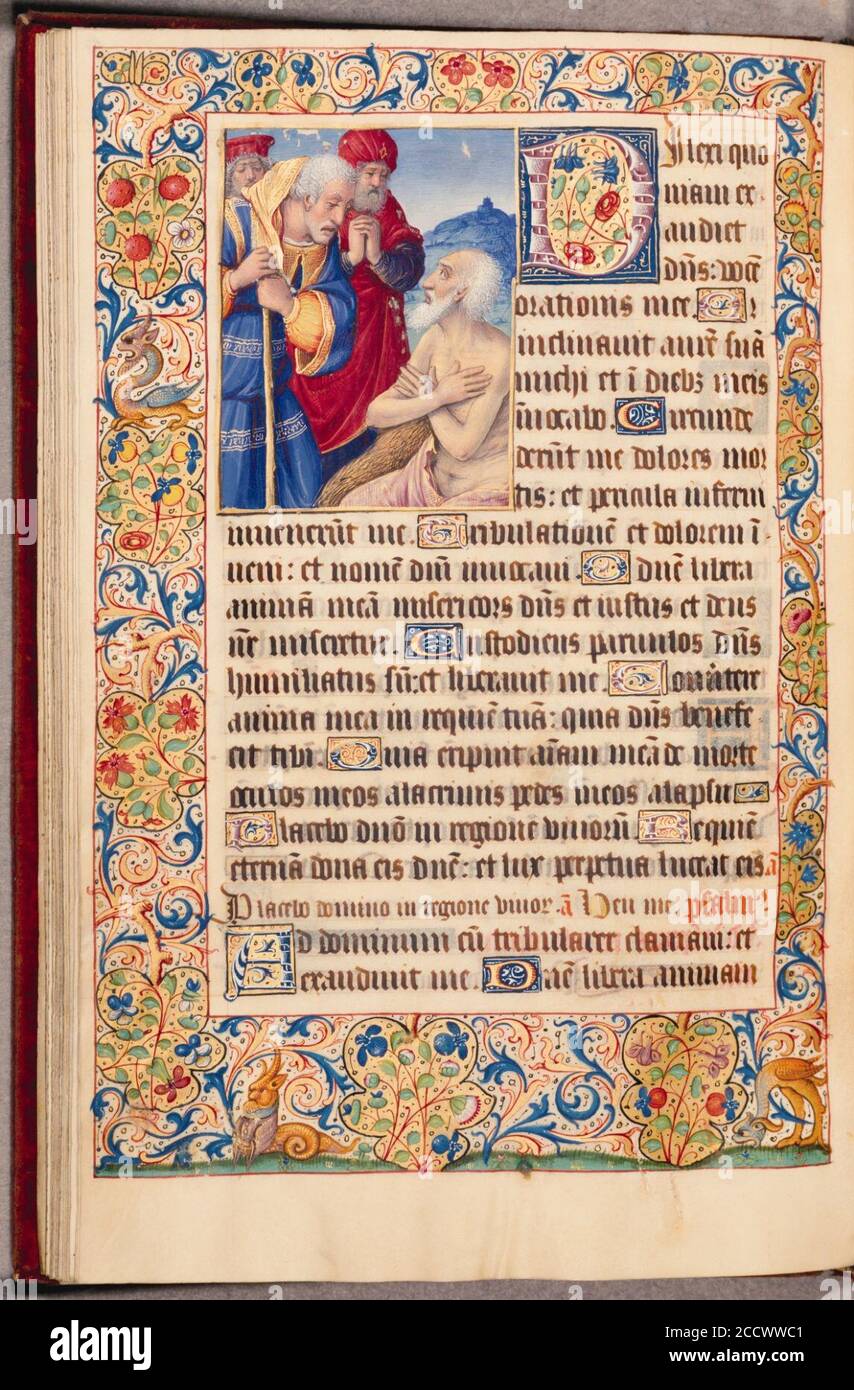 Dilexi quo
niam ex
audiet
dn̄s: vocē
orationis mee. Q
inclinauit aurē suā
michi et ī diebꝫ meis
īuocabo. Circunde
derūt me dolores mor
tis: et pericula inferni
inuenerūt me. Tribulationē et dolorem ī
ueni: et nomē dn̄i inuocaui. O dn̄e libera
animā meā misericors dn̄s et iustus et deus
nr̄ miseretur. Custodiens paruulos dn̄s
humiliatus sū: et liberauit me. Conūtere
anima mea in requiē tuā: quia dn̄s benefe
cit tibi. Quia eripuit aīam meā de morte
oculos meos alacrimis pedes meos alapsu
Placebo dn̄o in regione viuorū. Requiē
eternā dona eis dn̄e: et lux perpetua luceat eis. ā
Placebo domino in regione viuor. ā Heu me. psalm⁹
Ad dominum cū tribularer clamaui: et
exaudiuit me. Dn̄e libera animam
alamy
alamy
a
Image ID: 2CCWWC1
www.alamy.com